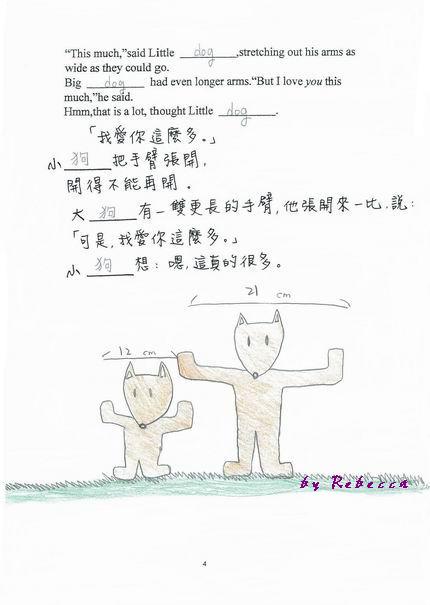 “This much,”said Little dog,stretching out his arms as
wide as they could go.
Big dog had even longer arms.“But I love you this
much,”he said.
Hmm,that is a lot, thought Little dog.
「我愛你這麼多。」
小狗把手臂張開,
開得不能再開。
大狗有一雙更長的手臂,他張開來一比,說:
「可是,我愛你這麼多。」
小狗想:嗯,這真的很多。
21 cm
12 cm
by Rebecca
4